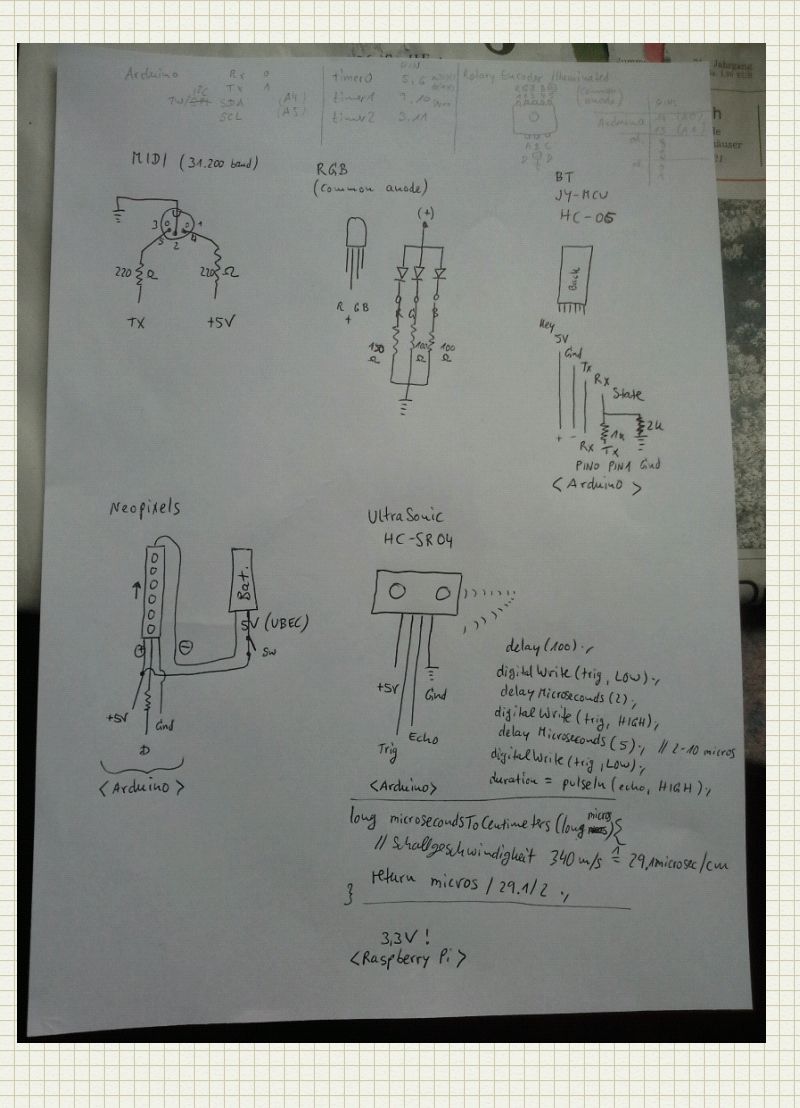 Arduino
Rx 0
Tx 1
I²C
TW/
SDA (A4)
SCL (A5)
PIN
timer0 5,6
timer1 9,10
timer2 3,11
Rotary Encoder illuminated
(common anode)
Arduino
PINs
A B C
D D
MIDI (31.200 baud)
3 1
5 4
2
220 Ω
220 Ω
TX
+5V
RGB
(common anode)
(+)
R GB
+
R G B
150 Ω
100 Ω
100 Ω
BT
JY-MCU
HC-05
Back
Key
5V
Gnd
Tx
Rx
State
+ -
1k
2k
Rx Tx
PIN0 PIN1 Gnd
<Arduino>
Neopixels
Bat.
5V (UBEC)
SW
+ -
+5V
Gnd
D
<Arduino>
UltraSonic
HC-SR04
+5V
Gnd
Echo
Trig
<Arduino>
delay(100);
digitalWrite(trig, LOW);
delayMicroseconds(2);
digitalWrite(trig, HIGH);
delay Microseconds(5); // 2-10 micros
digitalWrite(trig, LOW);
duration = pulseIn(echo, HIGH);
long microsecondsToCentimeters(long micros){
// Schallgeschwindigkeit 340 m/s ≙ 29,1microsec/cm
return micros / 29.1/2 ;
}
3,3V !
<Raspberry Pi>
Jahrgang